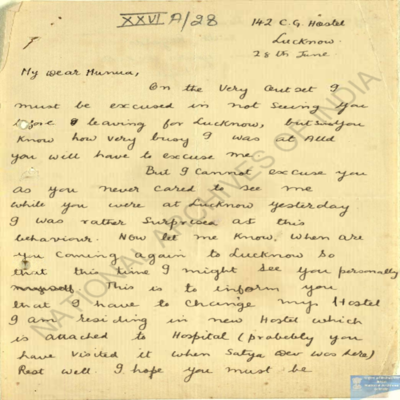 XXVI A/28
142 C.G. Hostel
Lucknow.
28th June
My Dear Munua,
On the very outset I
must be excused in not seeing you
before I leaving for Lucknow, but as you
know how very busy I was at Alld
you will have to excuse me.
But I cannot excuse you
as you never cared to see me
while you were at Lucknow yesterday
I was rather surprised at this
behaviour. Now let me know. When are
you coming again to Lucknow so
that this time I might see you personally
myself This is to inform you
that I have to change my Hostel
I am residing in new Hostel which
is attached to Hospital (probebly you
have visited it when Satya Dev was here)
Rest well I hope you must be
NATIONAL ARCHIVES OF INDIA